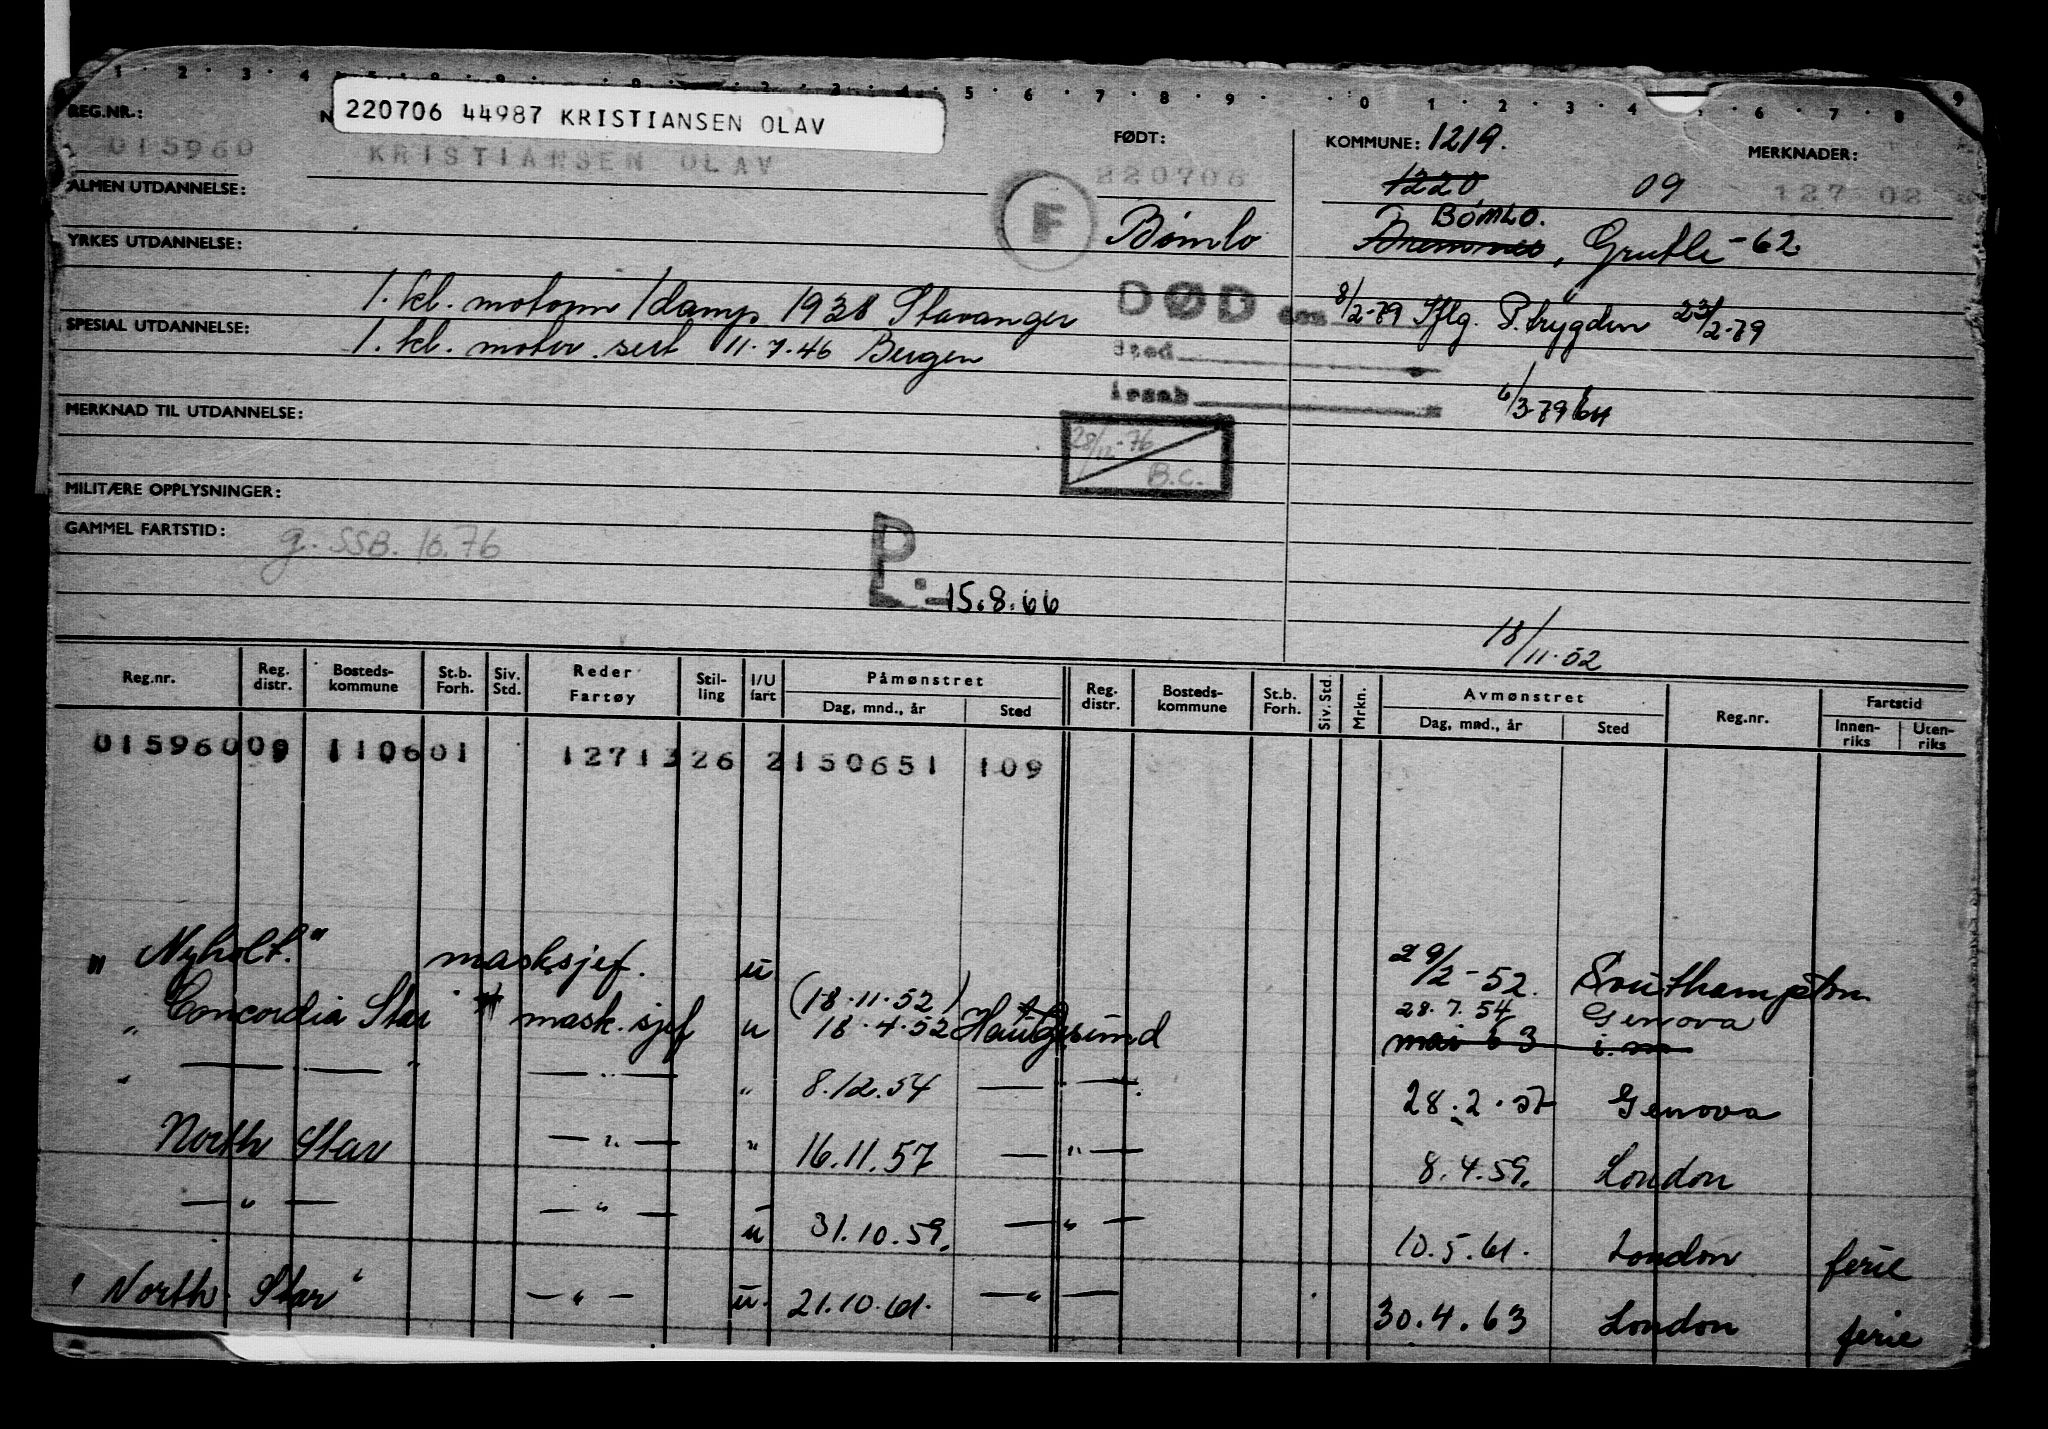 220706 44987 KRISTIANSEN OLAV
REG.NR.:
FØDT:
KOMMUNE: 1219.
MERKNADER:
015960 KRISTIANSEN OLAV
220706
1220 09 127 02
ALMEN UTDANNELSE:
F
BØMLO.
Bømlo
Bremnes, Grutle -62
YRKES UTDANNELSE:
1. kl. motorm /damp 1938 Stavanger
DØD den 8/2-79 Iflg. P. trygden 23/2-79
SPESIAL UTDANNELSE:
1. kl. motor. sert 11.7.46 Bergen
Sted
årsak
6/3-79
MERKNAD TIL UTDANNELSE:
28/12-76
B.C.
MILITÆRE OPPLYSNINGER:
GAMMEL FARTSTID:
g. SSB. 16.76
P.- 15.8.66
18/11-52
Reg.nr. Reg. distr. Bosteds- kommune St.b. Forh. Siv. Std. Reder Fartøy Stil- ling I/U fart Påmønstret Dag, mnd., år Sted Reg. distr. Bosteds- kommune St.b. Forh. Siv. Std. Mrkn. Avmønstret Dag, mnd., år Sted Reg.nr. Fartstid Innen- riks Uten- riks
01596009 110601 1271326 2150651 109
"Nyholt." masksjef. u 29/2-52. Southampton
(18.11.52) 28.7.54 Genova
"Concordia Star" mask.sjef u 18.4.52 Haugesund mai 63 i.m
" — — " — " — " 8.12.54 — " — 28.2.57 Genova
North Star — " — " 16.11.57 — " — 8.4.59. London
— " — — " — u 31.10.59. — " — 10.5.61. London ferie
"North Star" — " — u. 21.10.61. — " — 30.4.63 London ferie